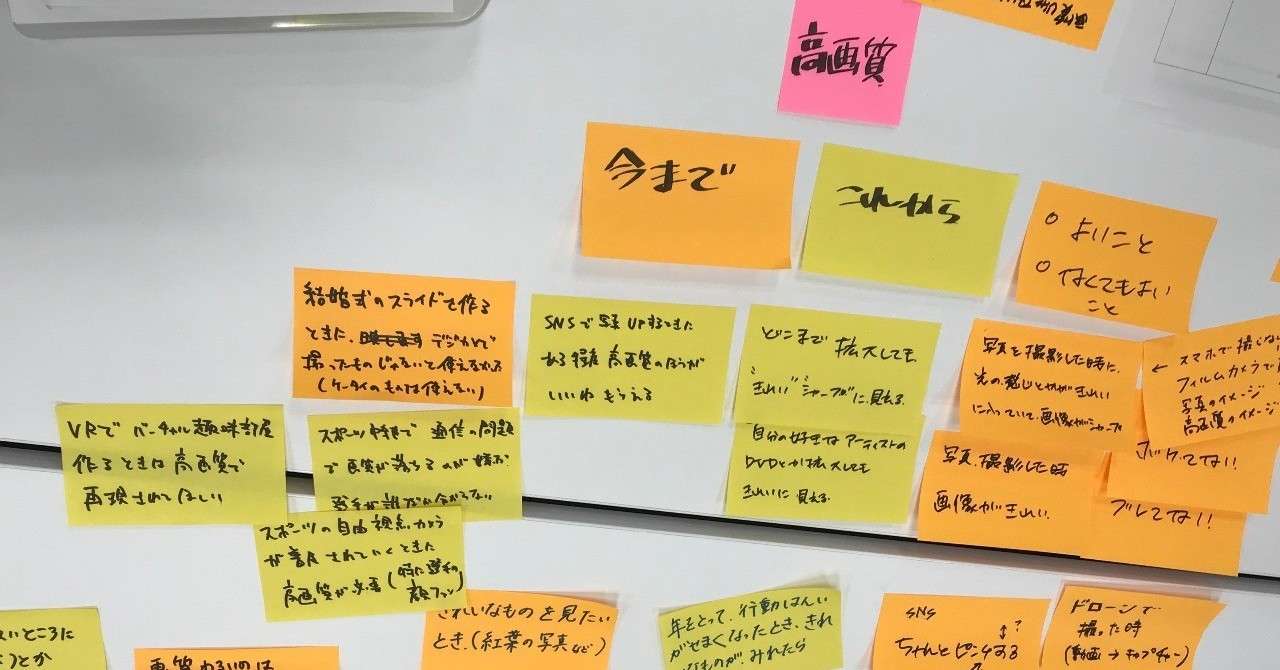 高画質
今まで
これから
○ よいこと
○ なくてもよい
こと
結婚式のスライドを作る
ときに、デジカメで
撮ったものじゃないと使えなかった
(ケータイのものは使えない)
SNSで写真UPするときに
ある程度高画質のほうが
いいねもらえる
どこまで拡大しても、
"きれい" シャープに見える
写真を撮影した時に、
光の感じとかがきれい
に入っていて画像がシャープ
← スマホで撮らない
フィルムカメラで
写真のイメージ
高画質のイメージ
VRでバーチャル趣味部屋
作るときは高画質で
再現されてほしい
スポーツ中継で通信の問題
で画質が落ちるのが嫌だ
選手が誰だか分からない
自分の好きなアーティストの
DVDとか拡大しても
きれいに見える
写真、撮影した時
画像がきれい
ボケてない!
ブレてない!
スポーツの自由視点カメラ
が普及されていくときに
高画質が必要(特に選手の
顔ファン)
きれいなものを見たい
とき(紅葉の写真など)
年をとって、行動はんい
がせまくなったとき、きれ
いなものが、みれたら
SNS
↕?
ちゃんとピンとする
ドローンで
撮った時
(動画→キャプチャー)
ないところに
うとか
画質わるいのは